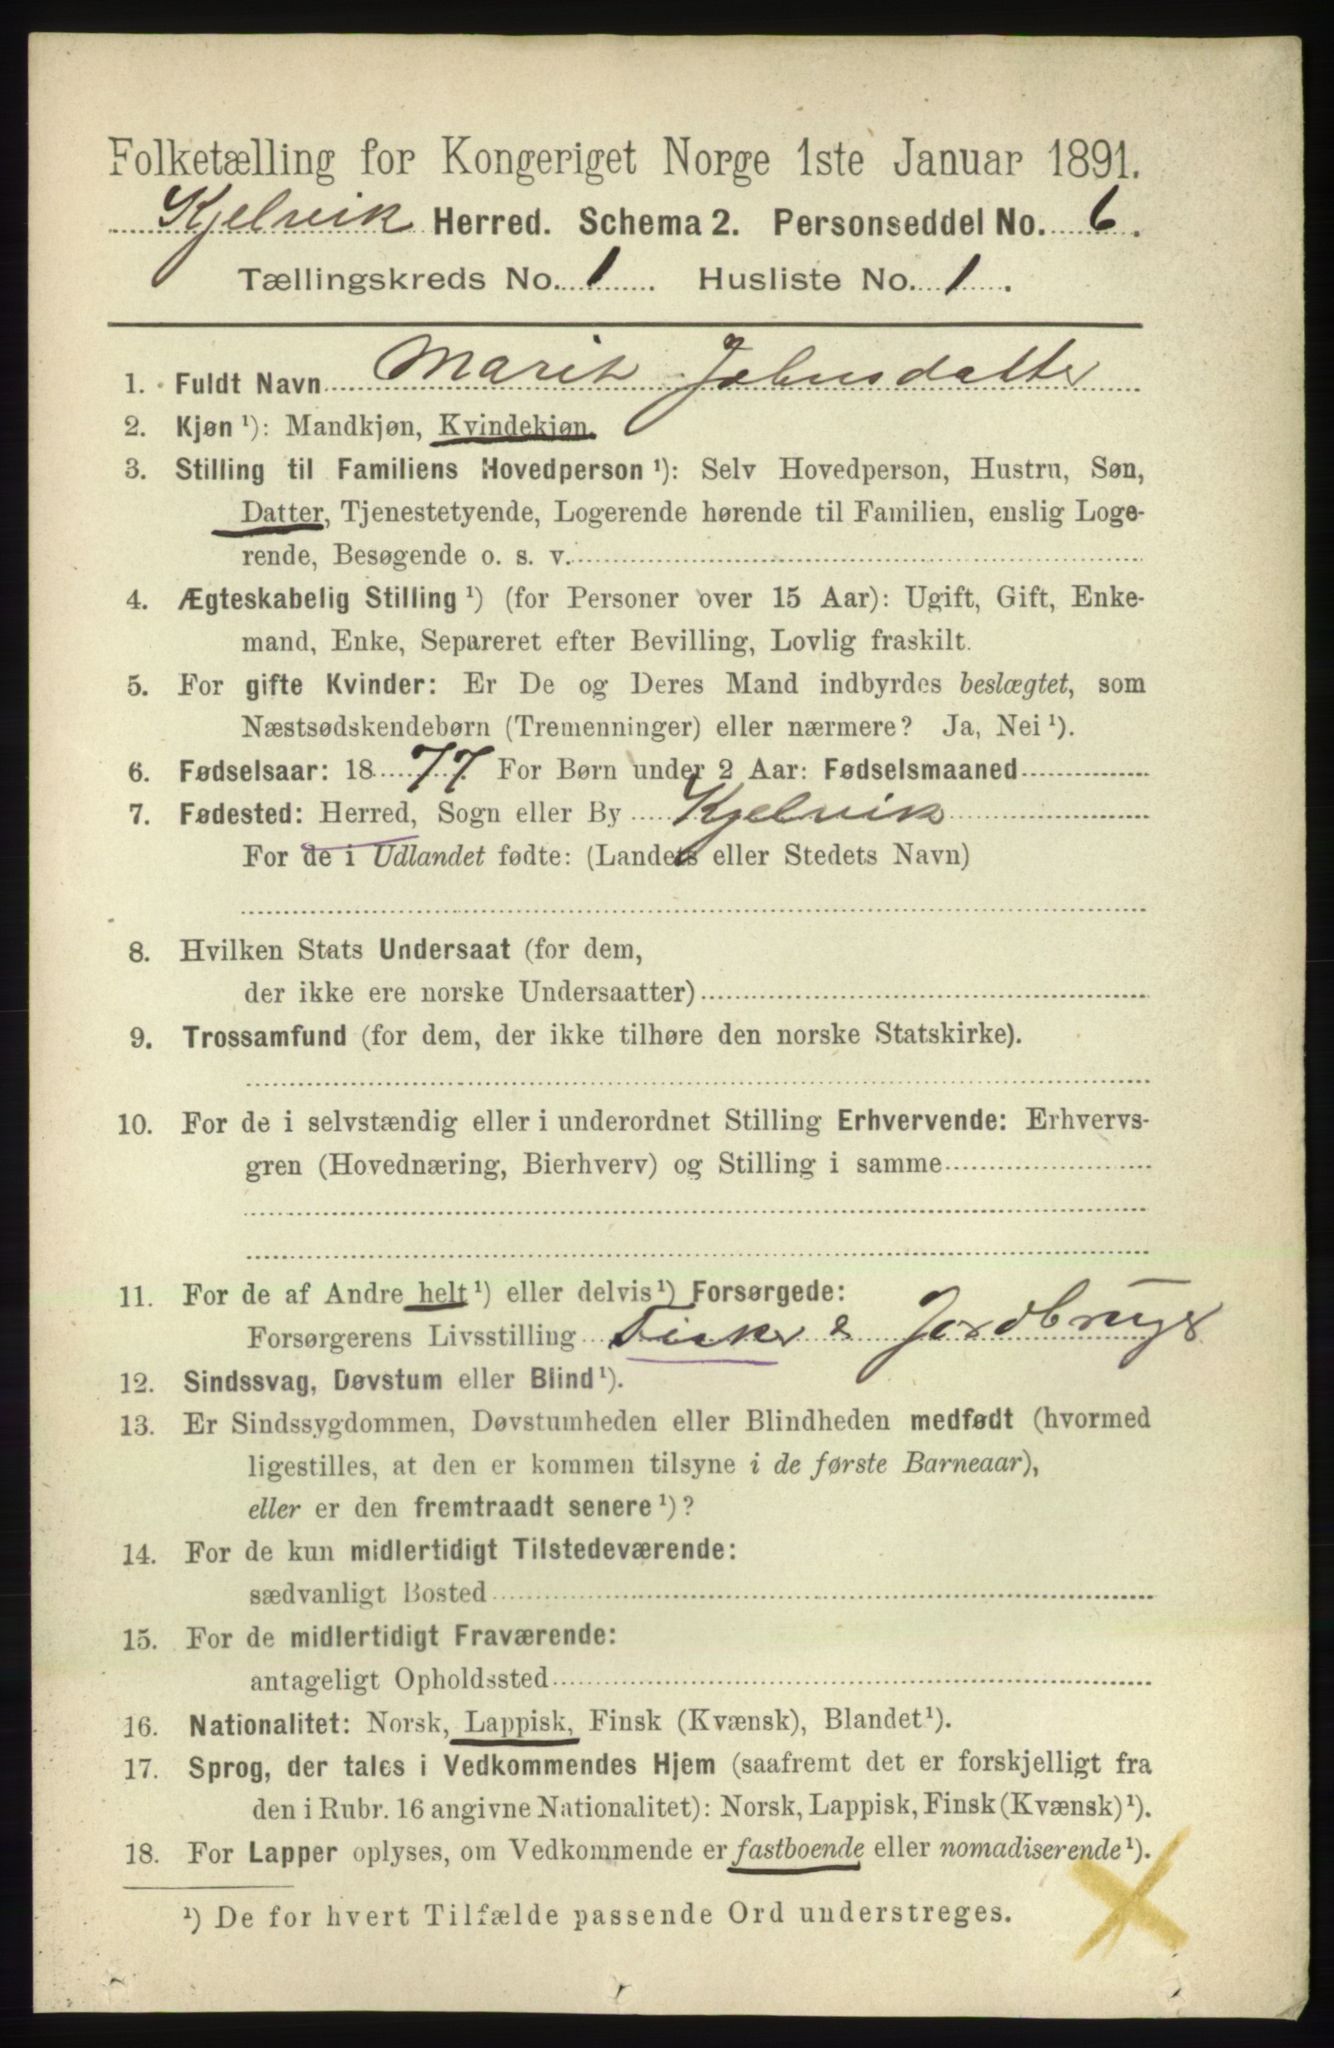 Folketælling for Kongeriget Norge 1ste Januar 1891.
Kjelvik Herred. Schema 2. Personseddel No. 6.
Tællingskreds No. 1. Husliste No. 1.
1. Fuldt Navn Marit Johnsdatter
2. Kjøn ¹): Mandkjøn, Kvindekjøn.
3. Stilling til Familiens Hovedperson ¹): Selv Hovedperson, Hustru, Søn,
Datter, Tjenestetyende, Logerende hørende til Familien, enslig Loge-
rende, Besøgende o. s. v.
4. Ægteskabelig Stilling ¹) (for Personer over 15 Aar): Ugift, Gift, Enke-
mand, Enke, Separeret efter Bevilling, Lovlig fraskilt.
5. For gifte Kvinder: Er De og Deres Mand indbyrdes beslægtet, som
Næstsødskendebørn (Tremenninger) eller nærmere? Ja, Nei ¹).
6. Fødselsaar: 1877. For Børn under 2 Aar: Fødselsmaaned
7. Fødested: Herred, Sogn eller By Kjelvik
For de i Udlandet fødte: (Landets eller Stedets Navn)
8. Hvilken Stats Undersaat (for dem,
der ikke ere norske Undersaatter)
9. Trossamfund (for dem, der ikke tilhøre den norske Statskirke).
10. For de i selvstændig eller i underordnet Stilling Erhvervende: Erhvervs-
gren (Hovednæring, Bierhverv) og Stilling i samme
11. For de af Andre helt ¹) eller delvis ¹) Forsørgede:
Forsørgerens Livsstilling Fisker & Jordbruger
12. Sindssvag, Døvstum eller Blind ¹).
13. Er Sindssygdommen, Døvstumheden eller Blindheden medfødt (hvormed
ligestilles, at den er kommen tilsyne i de første Barneaar),
eller er den fremtraadt senere ¹)?
14. For de kun midlertidigt Tilstedeværende:
sædvanligt Bosted
15. For de midlertidigt Fraværende:
antageligt Opholdssted
16. Nationalitet: Norsk, Lappisk, Finsk (Kvænsk), Blandet ¹).
17. Sprog, der tales i Vedkommendes Hjem (saafremt det er forskjelligt fra
den i Rubr. 16 angivne Nationalitet): Norsk, Lappisk, Finsk (Kvænsk) ¹).
18. For Lapper oplyses, om Vedkommende er fastboende eller nomadiserende ¹).
¹) De for hvert Tilfælde passende Ord understreges.